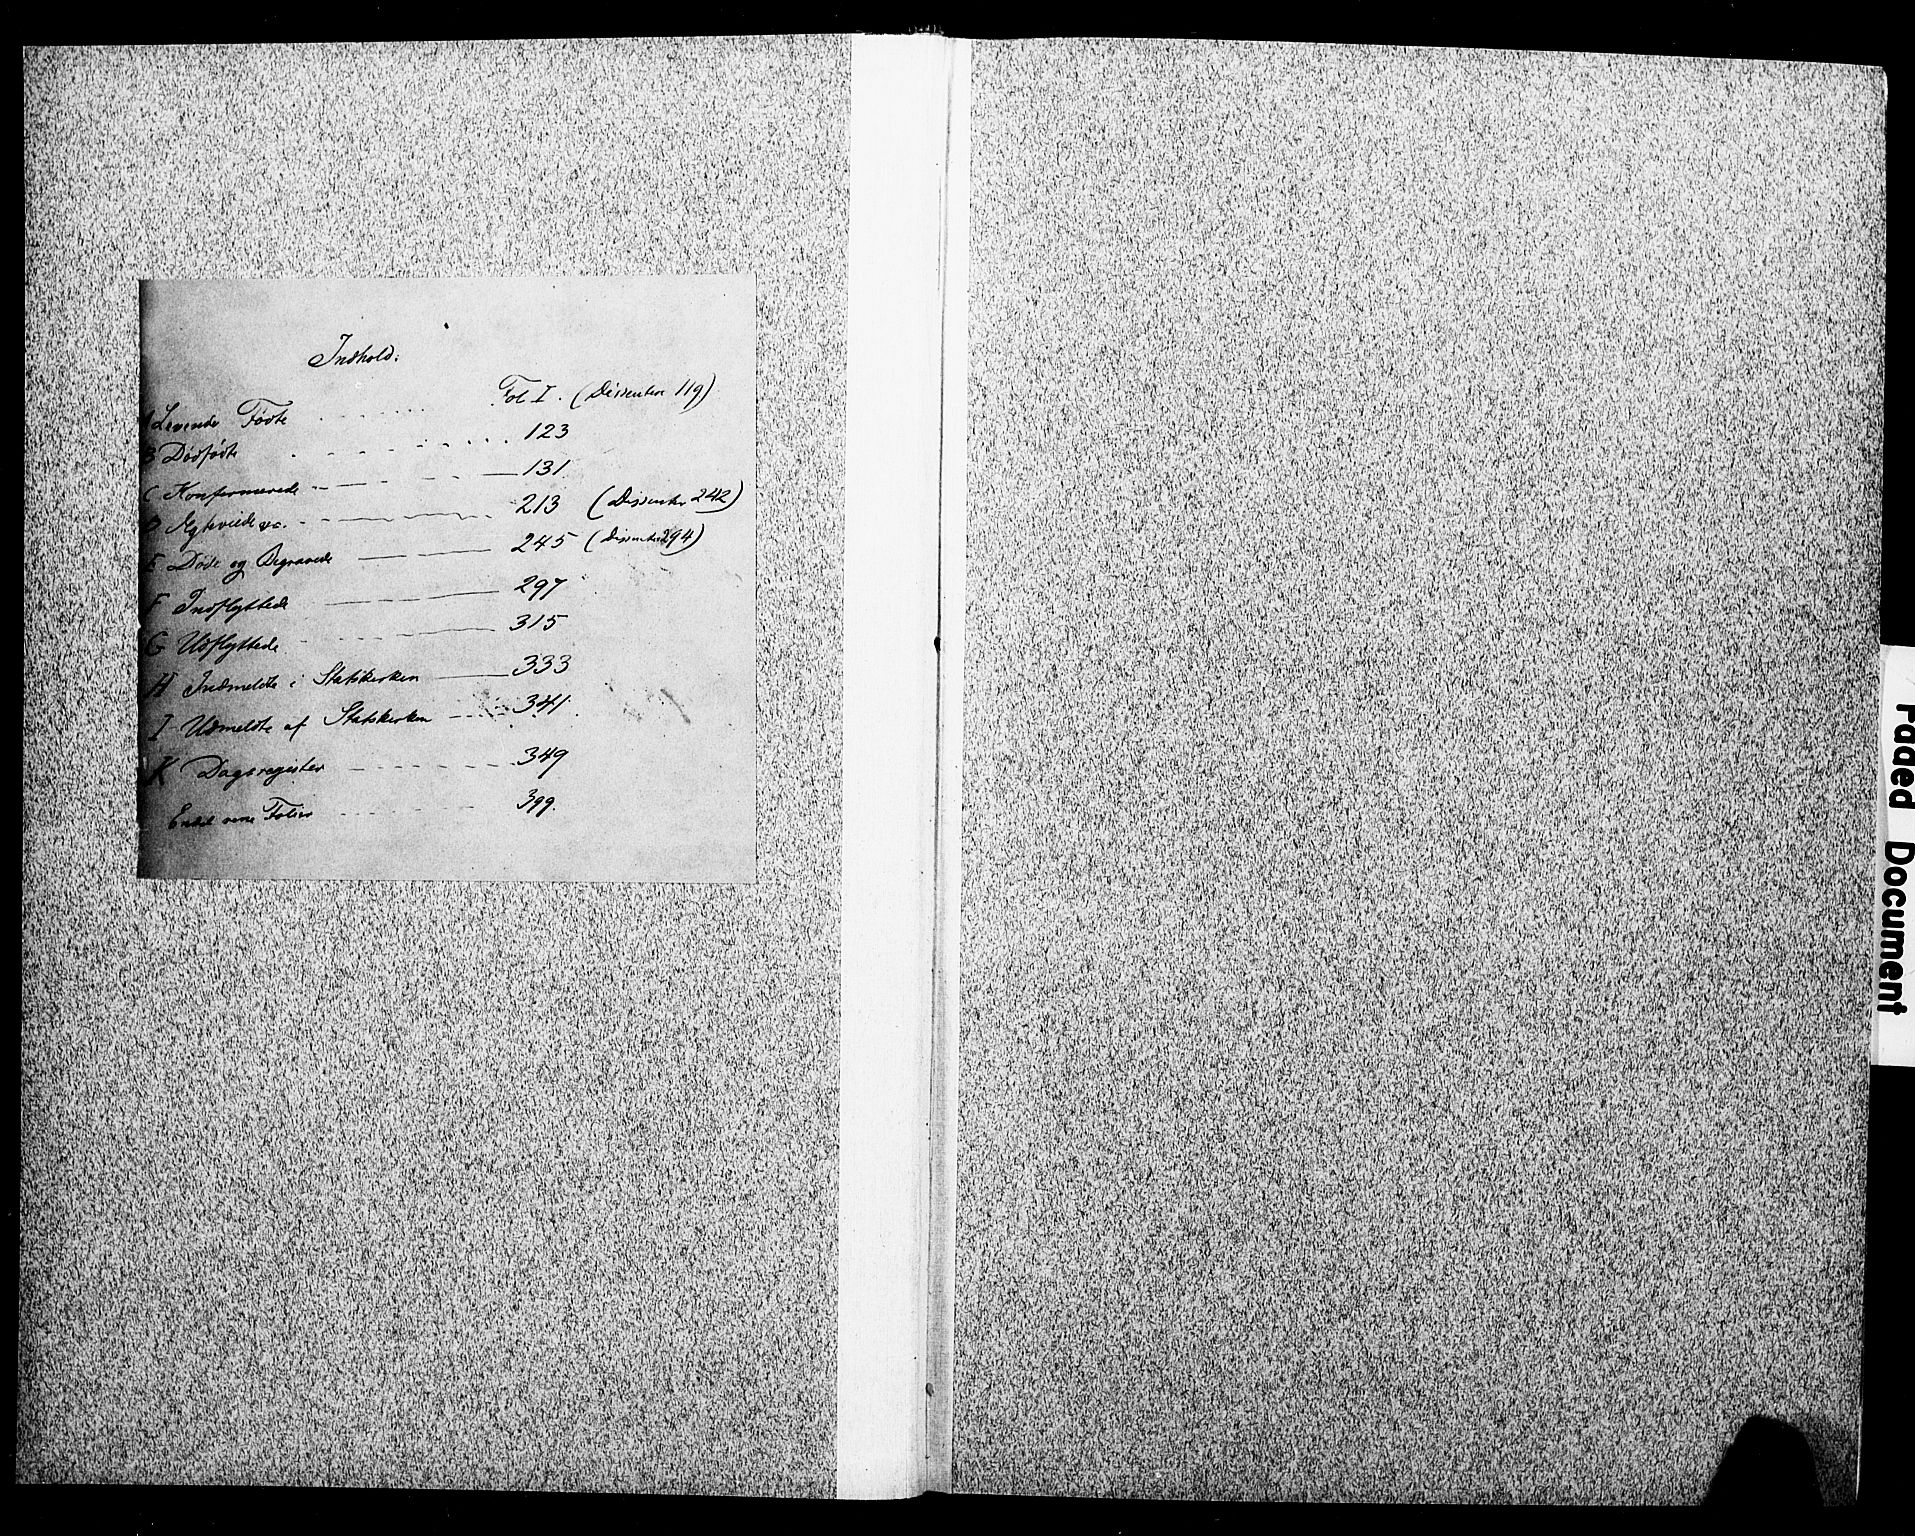 Indhold.
A Levende Fødte ........ Fol I. (Dissentere 119)
B Dødfødte ........ 123
C Konfirmerede ........ 131
D Ægteviede ........ 213 (Dissenter 242)
E Døde og Begravede ........ 245 (Dissenter 294)
F Indflyttede ........ 297
G Udflyttede ........ 315
H Indmeldte i Statskirken ........ 333
I Udmeldte af Statskirken ........ 341
K Dagsregister ........ 349
Endel rene Folier ........ 399.
Faded Document